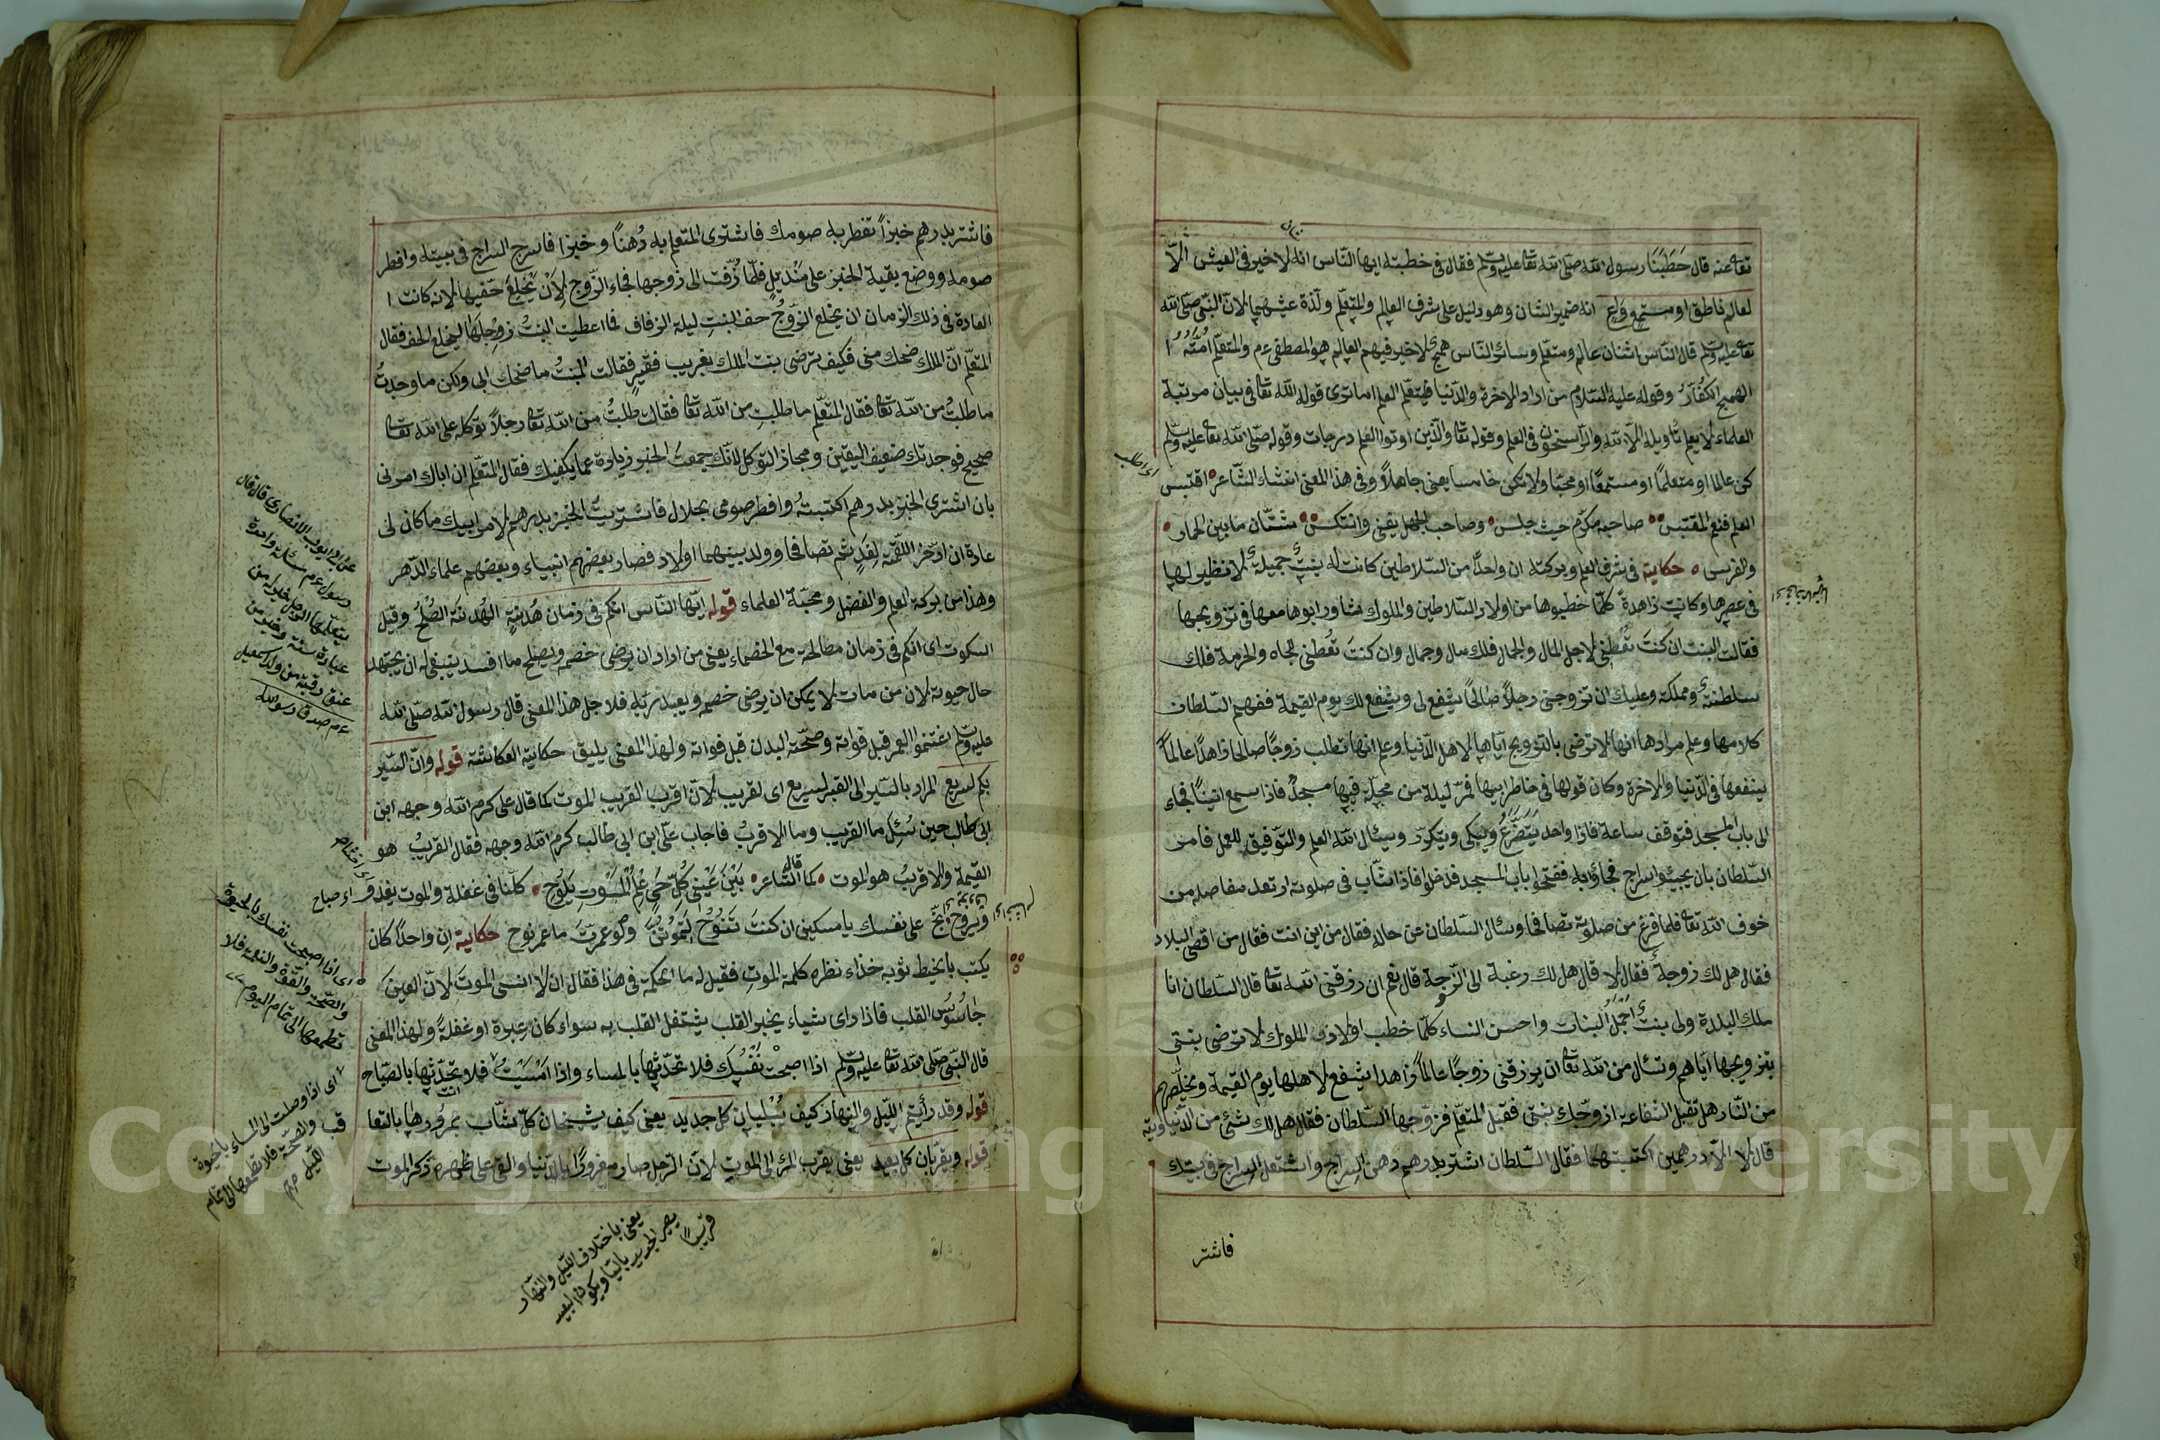 تعالى عنه قال خطبنا رسول الله صلى الله تعالى عليه وسلم فقال في خطبته ايها الناس انه لا خير في العيش الا
لعالم ناطق او مستمع واع انه ضمير الشان وهو دليل على شرف العالم والمتعلم ولذة عيشهما لان النبي صلى الله
تعالى عليه وسلم قال الناس اثنان عالم ومتعلم وسائر الناس همج لا خير فيهم العالم هو المصطفى عم والمتعلم امته ا
الهمج الكفار وقوله عليه السلام من اراد الاخرة والدنيا فليتعلم العلم اما ترى قوله الله تعالى في بيان مرتبة
العلماء لا يعلم تأويله الا الله والراسخون في العلم وقوله تعالى والذين اوتوا العلم درجات وقوله صلى الله تعالى عليه وسلم
كن عالما او متعلمًا او مستمعًا او محبًا ولا تكن خامسا يعني جاهلا وفي هذا المعنى انشاء الشاعر اقتبس
العلم فنعم المقتبس صاحبه مكرم حيث جلس وصاحب الجهل يقنى وانتكس شتّان ما بين الحمار
والفرس حكاية في شرف العلم وبركته ان واحدًا من السلاطين كانت له بنت جميلة لا نظير لها
في عصرها وكانت زاهدة كلما خطبوها من اولاد السلاطين والملوك شاور ابوها معها في تزويجها
فقالت البنت ان كنت تعطني لاجل المال والجمال فلك مال وجمال وان كنت تعطني للجاه والحرمة فلك
سلطنة ومملكة وعليك ان تزوجني رجلا صالحًا يشفع لي ويشفع لك يوم القيمة ففهم السلطان
كلامها وعلم مرادها انها لا ترضى بالتزويج اياها لاهل الدنيا وعلم انها تطلب زوجًا صالحا زاهدًا عالمًا
ينفعها في الدنيا والاخرة وكان قولها في خاطر ابيها فمر ليلة من محلة فيها مسجد فاذا سمع انينًا فجاء
الى باب المسجد فتوقف ساعة فاذا واحد يتضرع ويبكى ويتكرر ويسئال الله العلم والتوفيق للعمل فامر
السلطان بان يجيئوا سراج فجاؤا به ففتحوا باب المسجد فدخلوا فاذا شاب في صلوته ارتعد مفاصله من
خوف الله تعالى فلما فرغ من صلوته تصافحا وسئال السلطان عن حاله فقال من اين انت فقال من اقصى البلاد
فقال هل لك زوجة فقال لا قال هل لك رغبة الى الزوجة قال نعم ان رزقني الله تعالى قال السلطان انا
ملك البلدة ولى بنت اجمل البنات واحسن النساء كلما خطب اولاد الملوك لا ترضى بنتي
بتزويجها اياهم وتسأل من الله تعالى ان يرزقني زوجًا عالمًا زاهدا يشفع لاهلها يوم القيمة ويخلصهم
من النار هل تقبل الشفاعة ازوجك بنتي فقبل المتعلم فزوجها السلطان فقال هل لك شئ من الدنياوية
قال لا الا درهمين اكتسبتهما فقال السلطان اشتر بدرهم دهن السراج واشتعل السراج في بيتك
فاشتر
فاشتر بدرهم خبزًا تفطر به صومك فاشترى المتعلم به دهنًا وخبزا فاسرج السراج في بيته وافطر
صومه ووضع بقية الخبز على منديل فلما زُفّت الى زوجها فجاء الزوج لان يخلع خفيها لانه كانت ا
لعادة في ذلك الزمان ان يخلع الزوج خف البنت ليلة الزفاف فما اعطيت البنت زوجها ليخلع الخف فقال
المتعلم ان الملك ضحك مني فكيف ترضى بنت الملك بغريب فقير فقالت البنت ما ضحك ابى ولكن ما وجدت
ما طلبت من الله تعالى فقال المتعلم ما طلبت من الله تعالى فقالت طلبت من الله تعالى رجلا توكله على الله تعالى
صحيح فوجدتك ضعيف اليقين ومجاز التوكل لانك جمعت الخبز زيادة عما يكفيك فقال المتعلم ان اباك امرنى
بان اشترى الخبز بدرهم اكتسبته وافطر صومي بحلال فاشتريت الخبز بدرهم لامر ابيك ما كان لى
عادة ان ادخر اللقمة لغد ثم تصافحا وولد بينهما اولاد فصار بعضهم انبياء وبعضهم علماء الدهر
وهذا من بركة العلم والفضل ومحبة العلماء قوله ايها الناس انكم في زمان هدنة الهدنة الصلح وقيل
السكوت اى انكم في زمان مصالحة مع الخصماء يعني من اراد ان يرضى خصمه ويصلح ما افسد ينبغي له ان يجتهد
حال حيوته لان من مات لا يمكن ان يرضى خصمه ويعبد ربه فلا جل هذا المعنى قال رسول الله صلى الله
عليه وسلم اغتنموا العمر قبل فواته وصحة البدن قبل فواته ولهذا المعنى يليق حكاية العكاشة قوله وان السير
بكم لسريع المراد بالسير الى القبر لسريع اى لقريب لان اقرب القريب الموت كما قال على كرم الله وجهه ابن
ابى طالب حين سئل ما القريب وما الاقرب فاجاب على ابن ابى طالب كرم الله وجهه فقال القريب هو
القيمة والاقرب هو الموت كما قاله الشاعر بين عيني كل حي علم الموت يلوح كلنا في غفلة والموت يغدو
ويروح نح على نفسك يا مسكين ان كنت تنوح لتموتن ولو عمرت ما عمر نوح حكاية ان واحدًا كان
يكتب بالخيط ثوبه حذاء نظره كلمة الموت فقيل له ما الحكمة في هذا فقال ان لا انسى الموت لان العين
جاسوس القلب فاذا راى شياء يخبر القلب يشتغل القلب به سواء كان عبرة او غفلة ولهذا المعنى
قال النبي صلى الله تعالى عليه وسلم اذا اصبحت نفسك فلا تحدثها بالمساء واذا امسيت فلا تحدثها بالصباح
قوله وقد رأيتم الليل والنهار كيف يبليان كل جديد يعني كيف يشيخان كل شاب بمرورها بالتعا
قوله ويقربان كل بعيد يعني يقرب المرء الى الموت لان الرجل صار مغرورًا بالدنيا والقى على ظهره ذكر الموت
عن ابى ايوب الانصارى قال قال
رسول عم مسئلة واحدة
يتعلمها الرجل خير له من
عبادة سنة وخير من
عتق رقبة من ولد اسمعيل
عم صدق رسول الله
اى صباح
اى اذا اصبحت نفسك بالحيوة
والصحة والقوة والنعمة فلا
تطمعها الى تمام اليوم
اى اذا وصلت الى المساء بالحيوة
والصحة فلا تطمعها الى تمام
الليل
يعني باختلاف الليل والنهار
يصير الجديد باليًا ويكون البعيد
قريبًا
Copyright © King Saud University